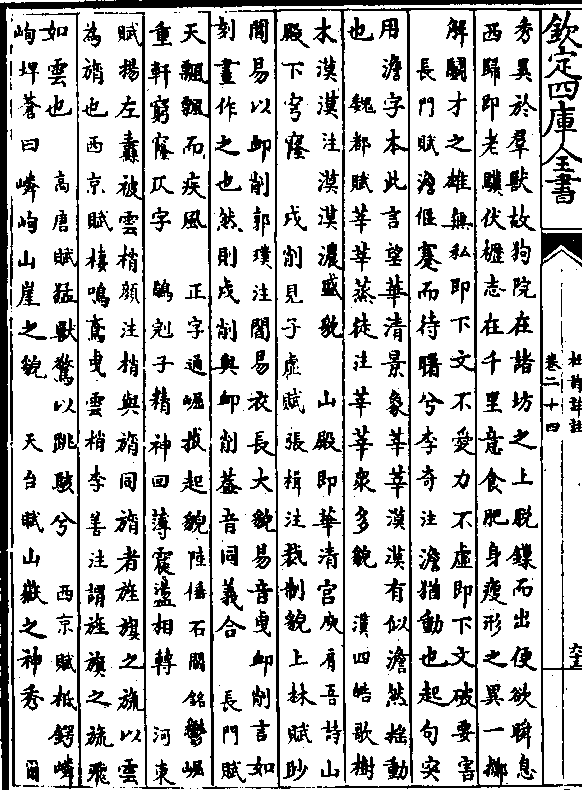 欽定四庫全書
杜詩詳註
卷二十四
秀異於羣獸故狗院在諸坊之上脱鏁而出便欲瞬息
西歸即老驥伏櫪志在千里意食肥身瘦形之異一擲
解鬭才之雄無私即下文不愛力不虛即下文破要害
長門賦澹偃蹇而待曙兮李奇注澹猶動也起句突
用澹字本此言望華清景象莘莘漠漠有似澹然揺動
也 魏都賦莘莘蒸徒注莘莘衆多貌 漢四皓歌樹
木漠漠注漠漠濃盛貌 山殿即華清宫庾肩吾詩山
殿下穹窿 戌削見子虛賦張楫注裁制貌上林賦眇
閻易以卹削郭璞注閻易衣長大貌易音曳卹削言如
刻畫作之也然則戌削與卹削葢音同義合 長門賦
天飄飄而疾風 正字通崛拔起貌陸倕石闕銘鬱崛
重軒窮窿仄字 鶡冠子精神回薄震盪相轉 河東
賦揚左纛被雲梢顔注梢與旓同旓者旌旗之旒以雲
為旓也西京賦棲鳴鳶曳雲梢李善注謂旌旗之旒飛
如雲也 高唐賦猛獸驚以跳駭兮 西京賦柢鍔嶙
峋埤蒼曰嶙峋山崖之貌 天台賦山嶽之神秀 爾